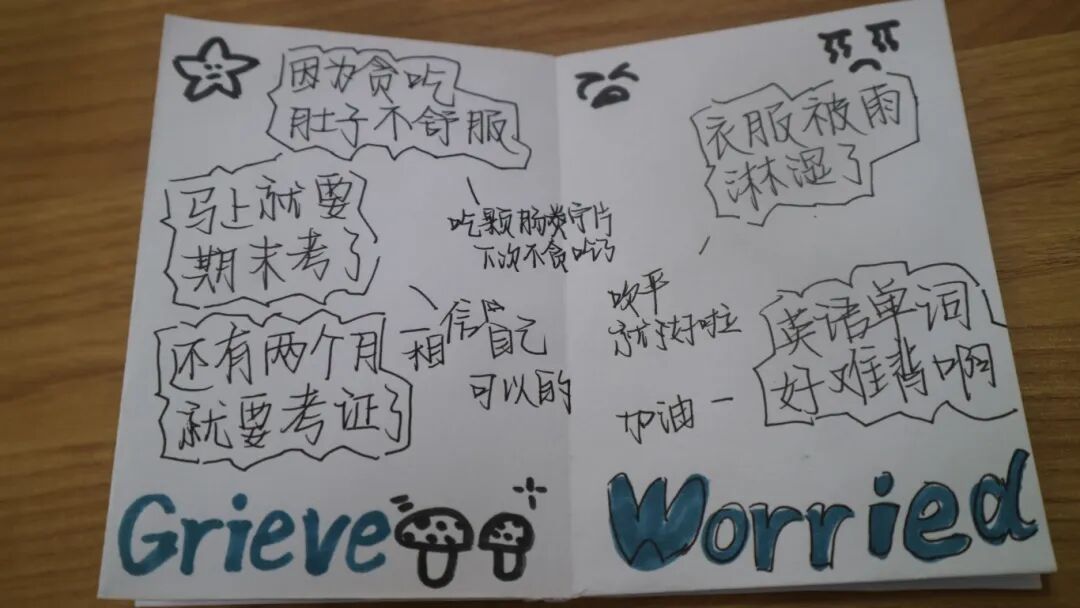 因为贪吃
肚子不舒服
马上就要
期末考了
吃颗肠炎宁片
下次不贪吃了
还有两个月
就要考证了
相信自己
可以的
Grieve
衣服被雨
淋湿了
吹干
就好啦
英语单词
好难背啊
加油
Worried